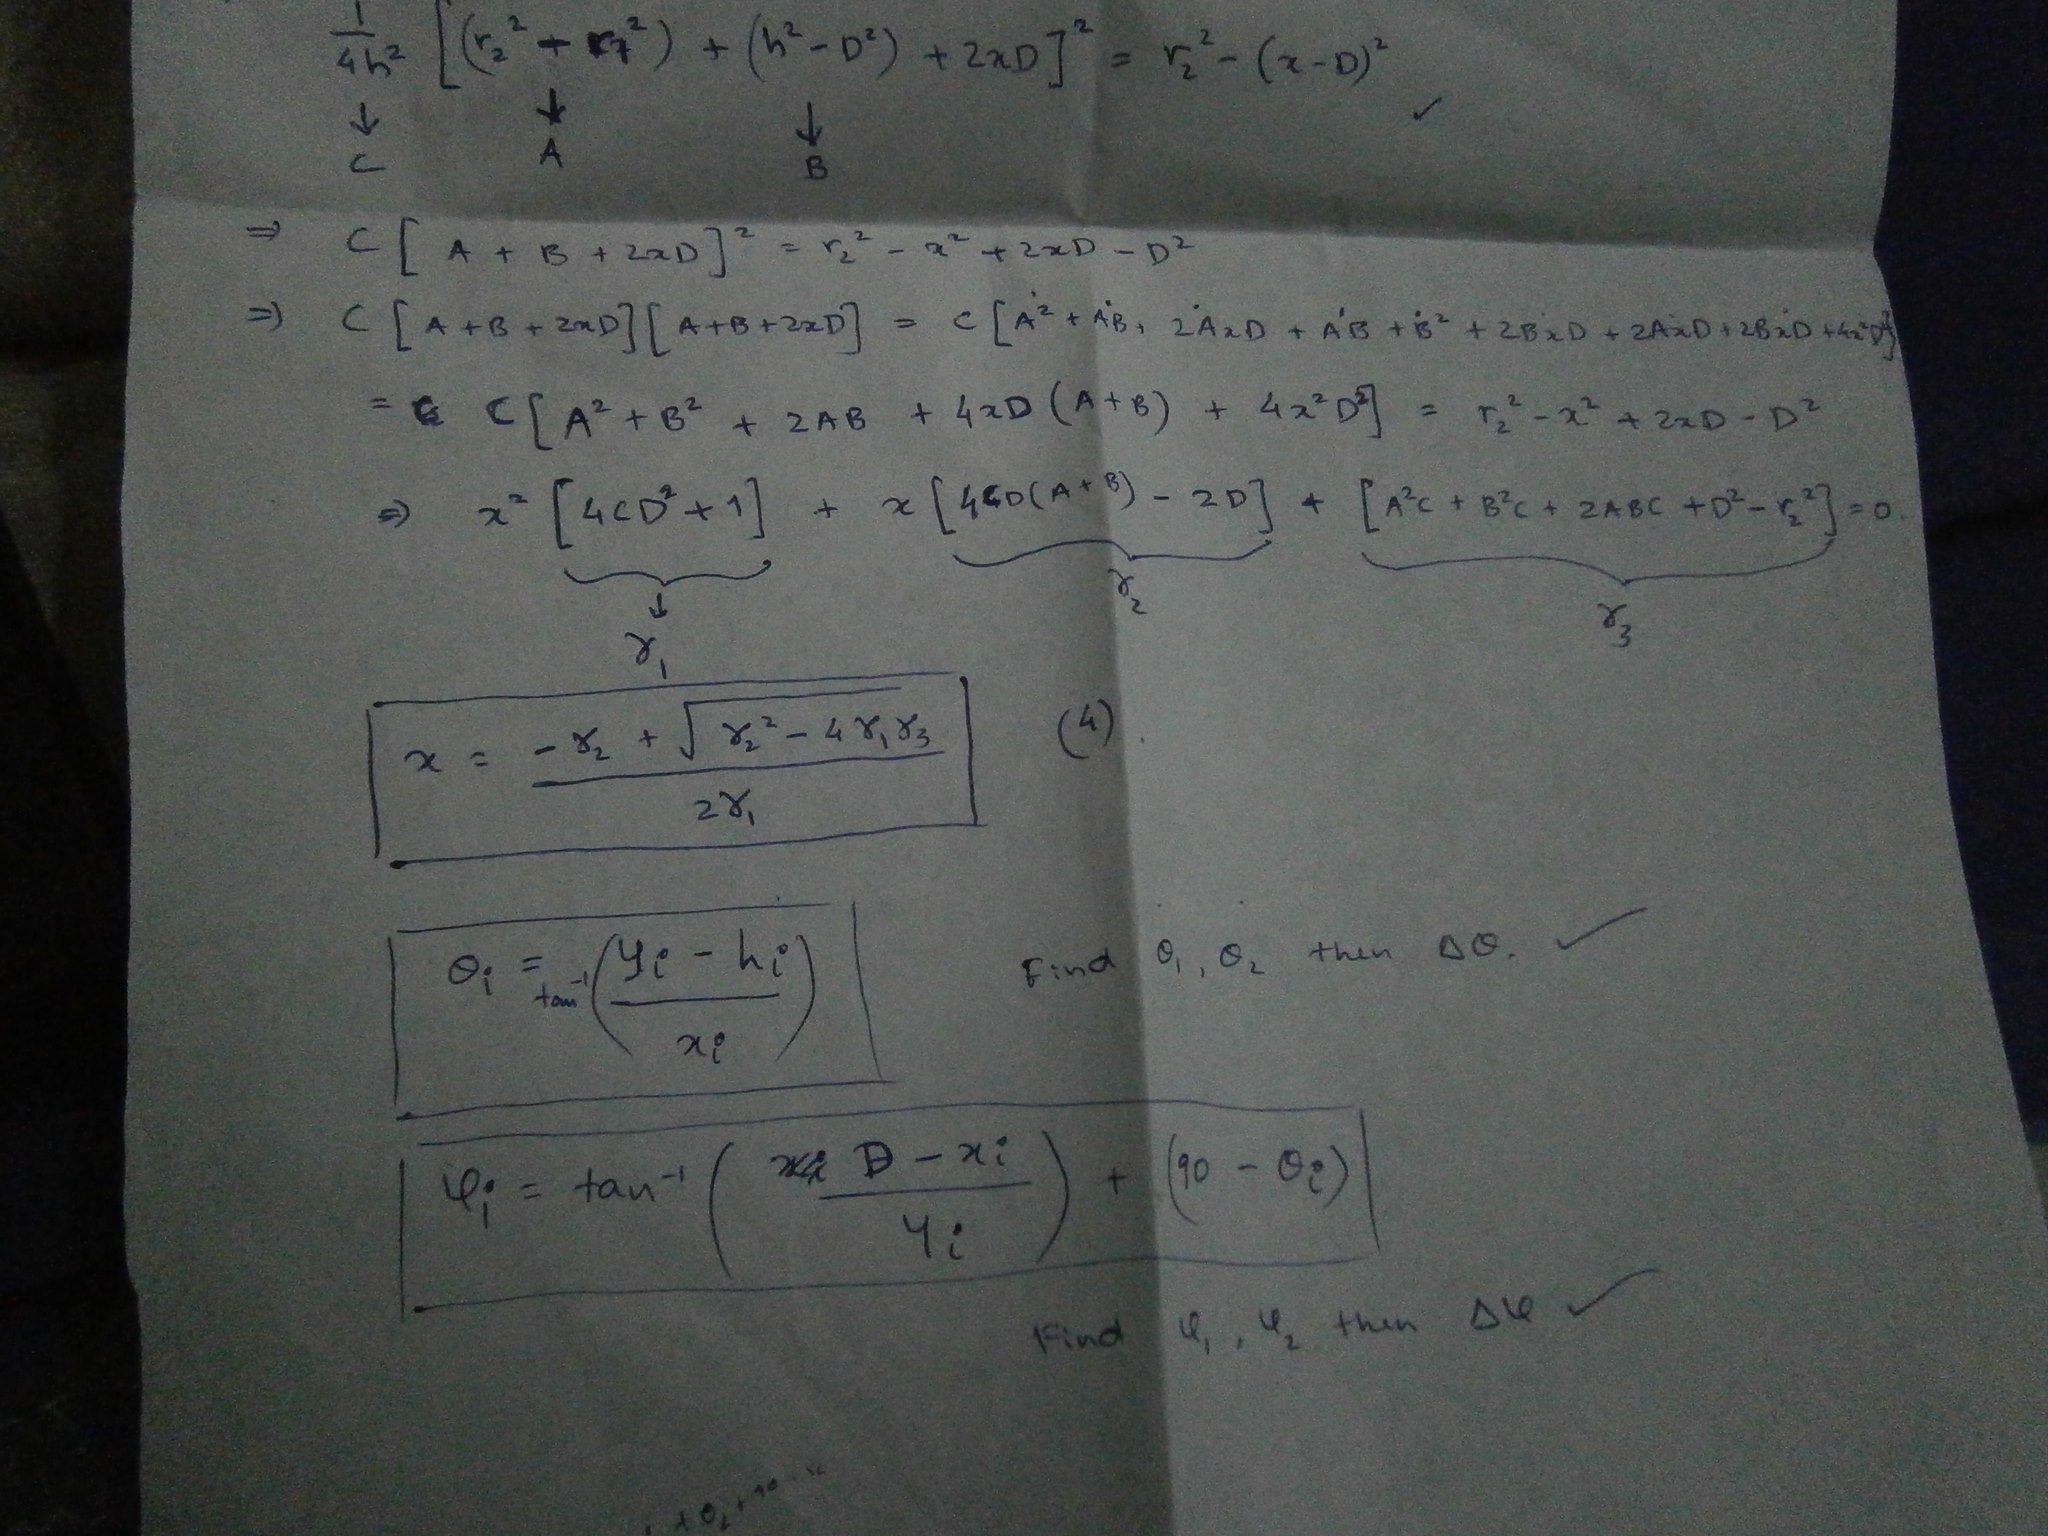 1/4h² [(r₂² - r₁²) + (h² - D²) + 2xD]² = r₂² - (x-D)² ✓
↓ ↓ ↓
C A B
⇒ C [A + B + 2xD]² = r₂² - x² + 2xD - D²
⇒ C [A + B + 2xD][A + B + 2xD] = C [A² + AB + 2AxD + AB + B² + 2BxD + 2AxD + 2BxD + 4x²D²]
= C [A² + B² + 2AB + 4xD (A+B) + 4x²D²] = r₂² - x² + 2xD - D²
⇒ x² [4CD² + 1] + x [4CD(A+B) - 2D] + [A²C + B²C + 2ABC + D² - r₂²] = 0.
↓
γ₁ γ₂ γ₃
x = (-γ₂ + √(γ₂² - 4γ₁γ₃)) / 2γ₁ (4).
θᵢ = tan⁻¹ ((yᵢ - hᵢ) / xᵢ) Find θ₁, θ₂ then Δθ. ✓
φᵢ = tan⁻¹ ((D - xᵢ) / yᵢ) + (90 - θᵢ)
Find φ₁, φ₂ then Δφ ✓
+ θ₂ + 90